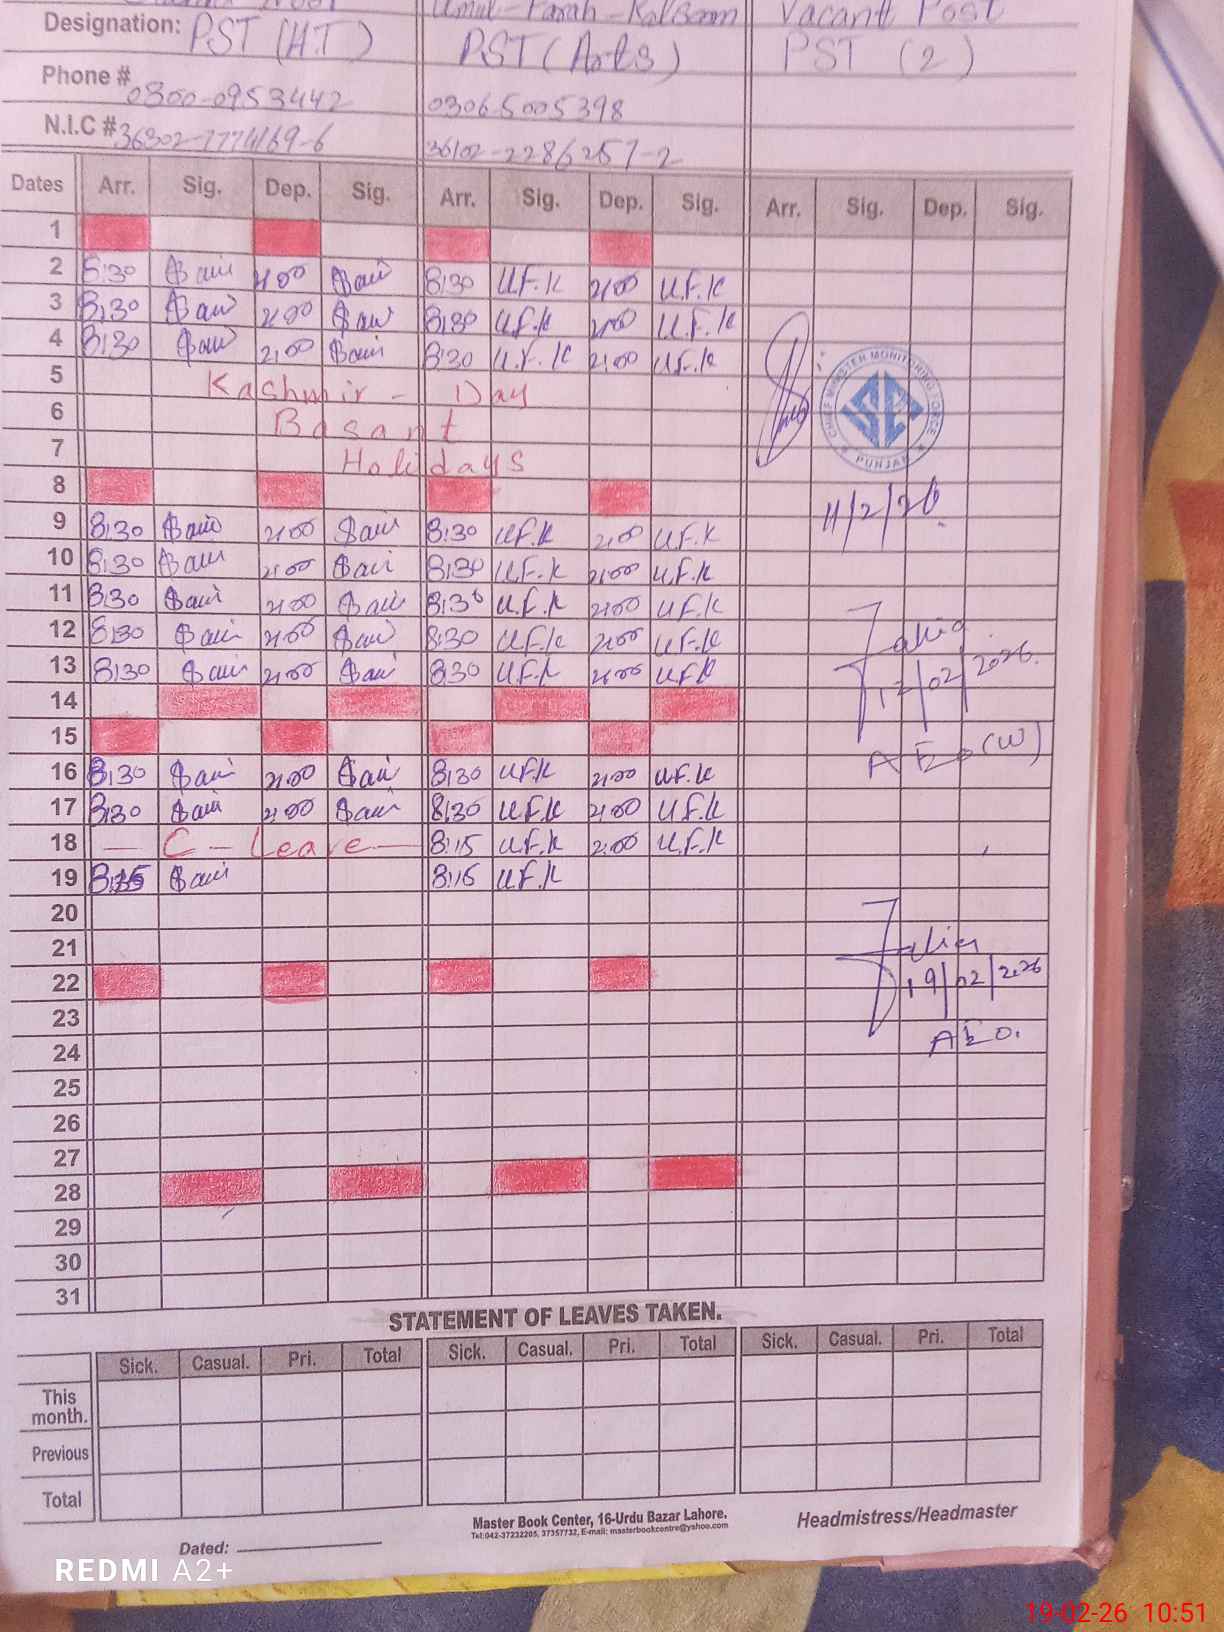 Umul-Farah-Kalsoom Vacant Post
Designation: PST (H.T) PST (Arts) PST (2)
Phone # 0300-0953442 03065005398
N.I.C # 36302-7774169-6 36102-2286257-2
Dates Arr. Sig. Dep. Sig. Arr. Sig. Dep. Sig. Arr. Sig. Dep. Sig.
1
2 8:30 2:00 8:30 U.F.K 2:00 U.F.K
3 8:30 2:00 8:30 U.F.K 2:00 U.F.K
4 8:30 2:00 8:30 U.F.K 2:00 U.F.K
5 Kashmir - Day
6 Basant
7 Holidays
CHIEF MINISTER MONITORING FORCE
PUNJAB
8
4/2/26
9 8:30 2:00 8:30 U.F.K 2:00 U.F.K
10 8:30 2:00 8:30 U.F.K 2:00 U.F.K
11 8:30 2:00 8:30 U.F.K 2:00 U.F.K
12 8:30 2:00 8:30 U.F.K 2:00 U.F.K
13 8:30 2:00 8:30 U.F.K 2:00 U.F.K
12/02/2026.
14
15
AEO (W)
16 8:30 2:00 8:30 U.F.K 2:00 U.F.K
17 8:30 2:00 8:30 U.F.K 2:00 U.F.K
18 — C - Leave — 8:15 U.F.K 2:00 U.F.K
19 8:15 8:15 U.F.K
20
21
22
19/02/2026
23
24
AEO.
25
26
27
28
29
30
31
STATEMENT OF LEAVES TAKEN.
Sick. Casual. Pri. Total Sick. Casual. Pri. Total Sick. Casual. Pri. Total
This
month.
Previous
Total
Master Book Center, 16-Urdu Bazar Lahore.
Tel:042-37232205, 37357732, E-mail: masterbookcentre@yahoo.com
Headmistress/Headmaster
Dated:
REDMI A2+
19-02-26 10:51